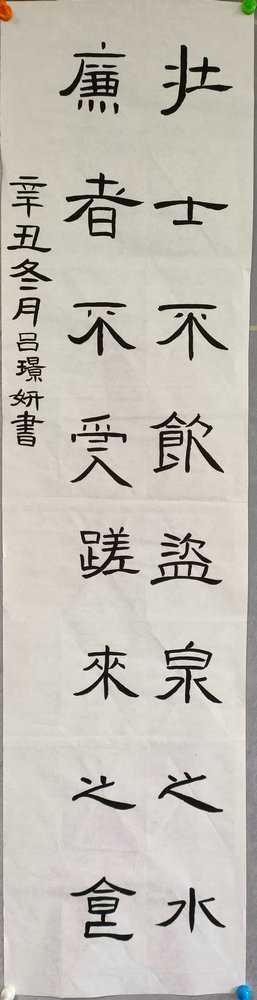 壮士不飲盜泉之水
廉者不受蹉來之食
辛丑冬二月吕璟妍書